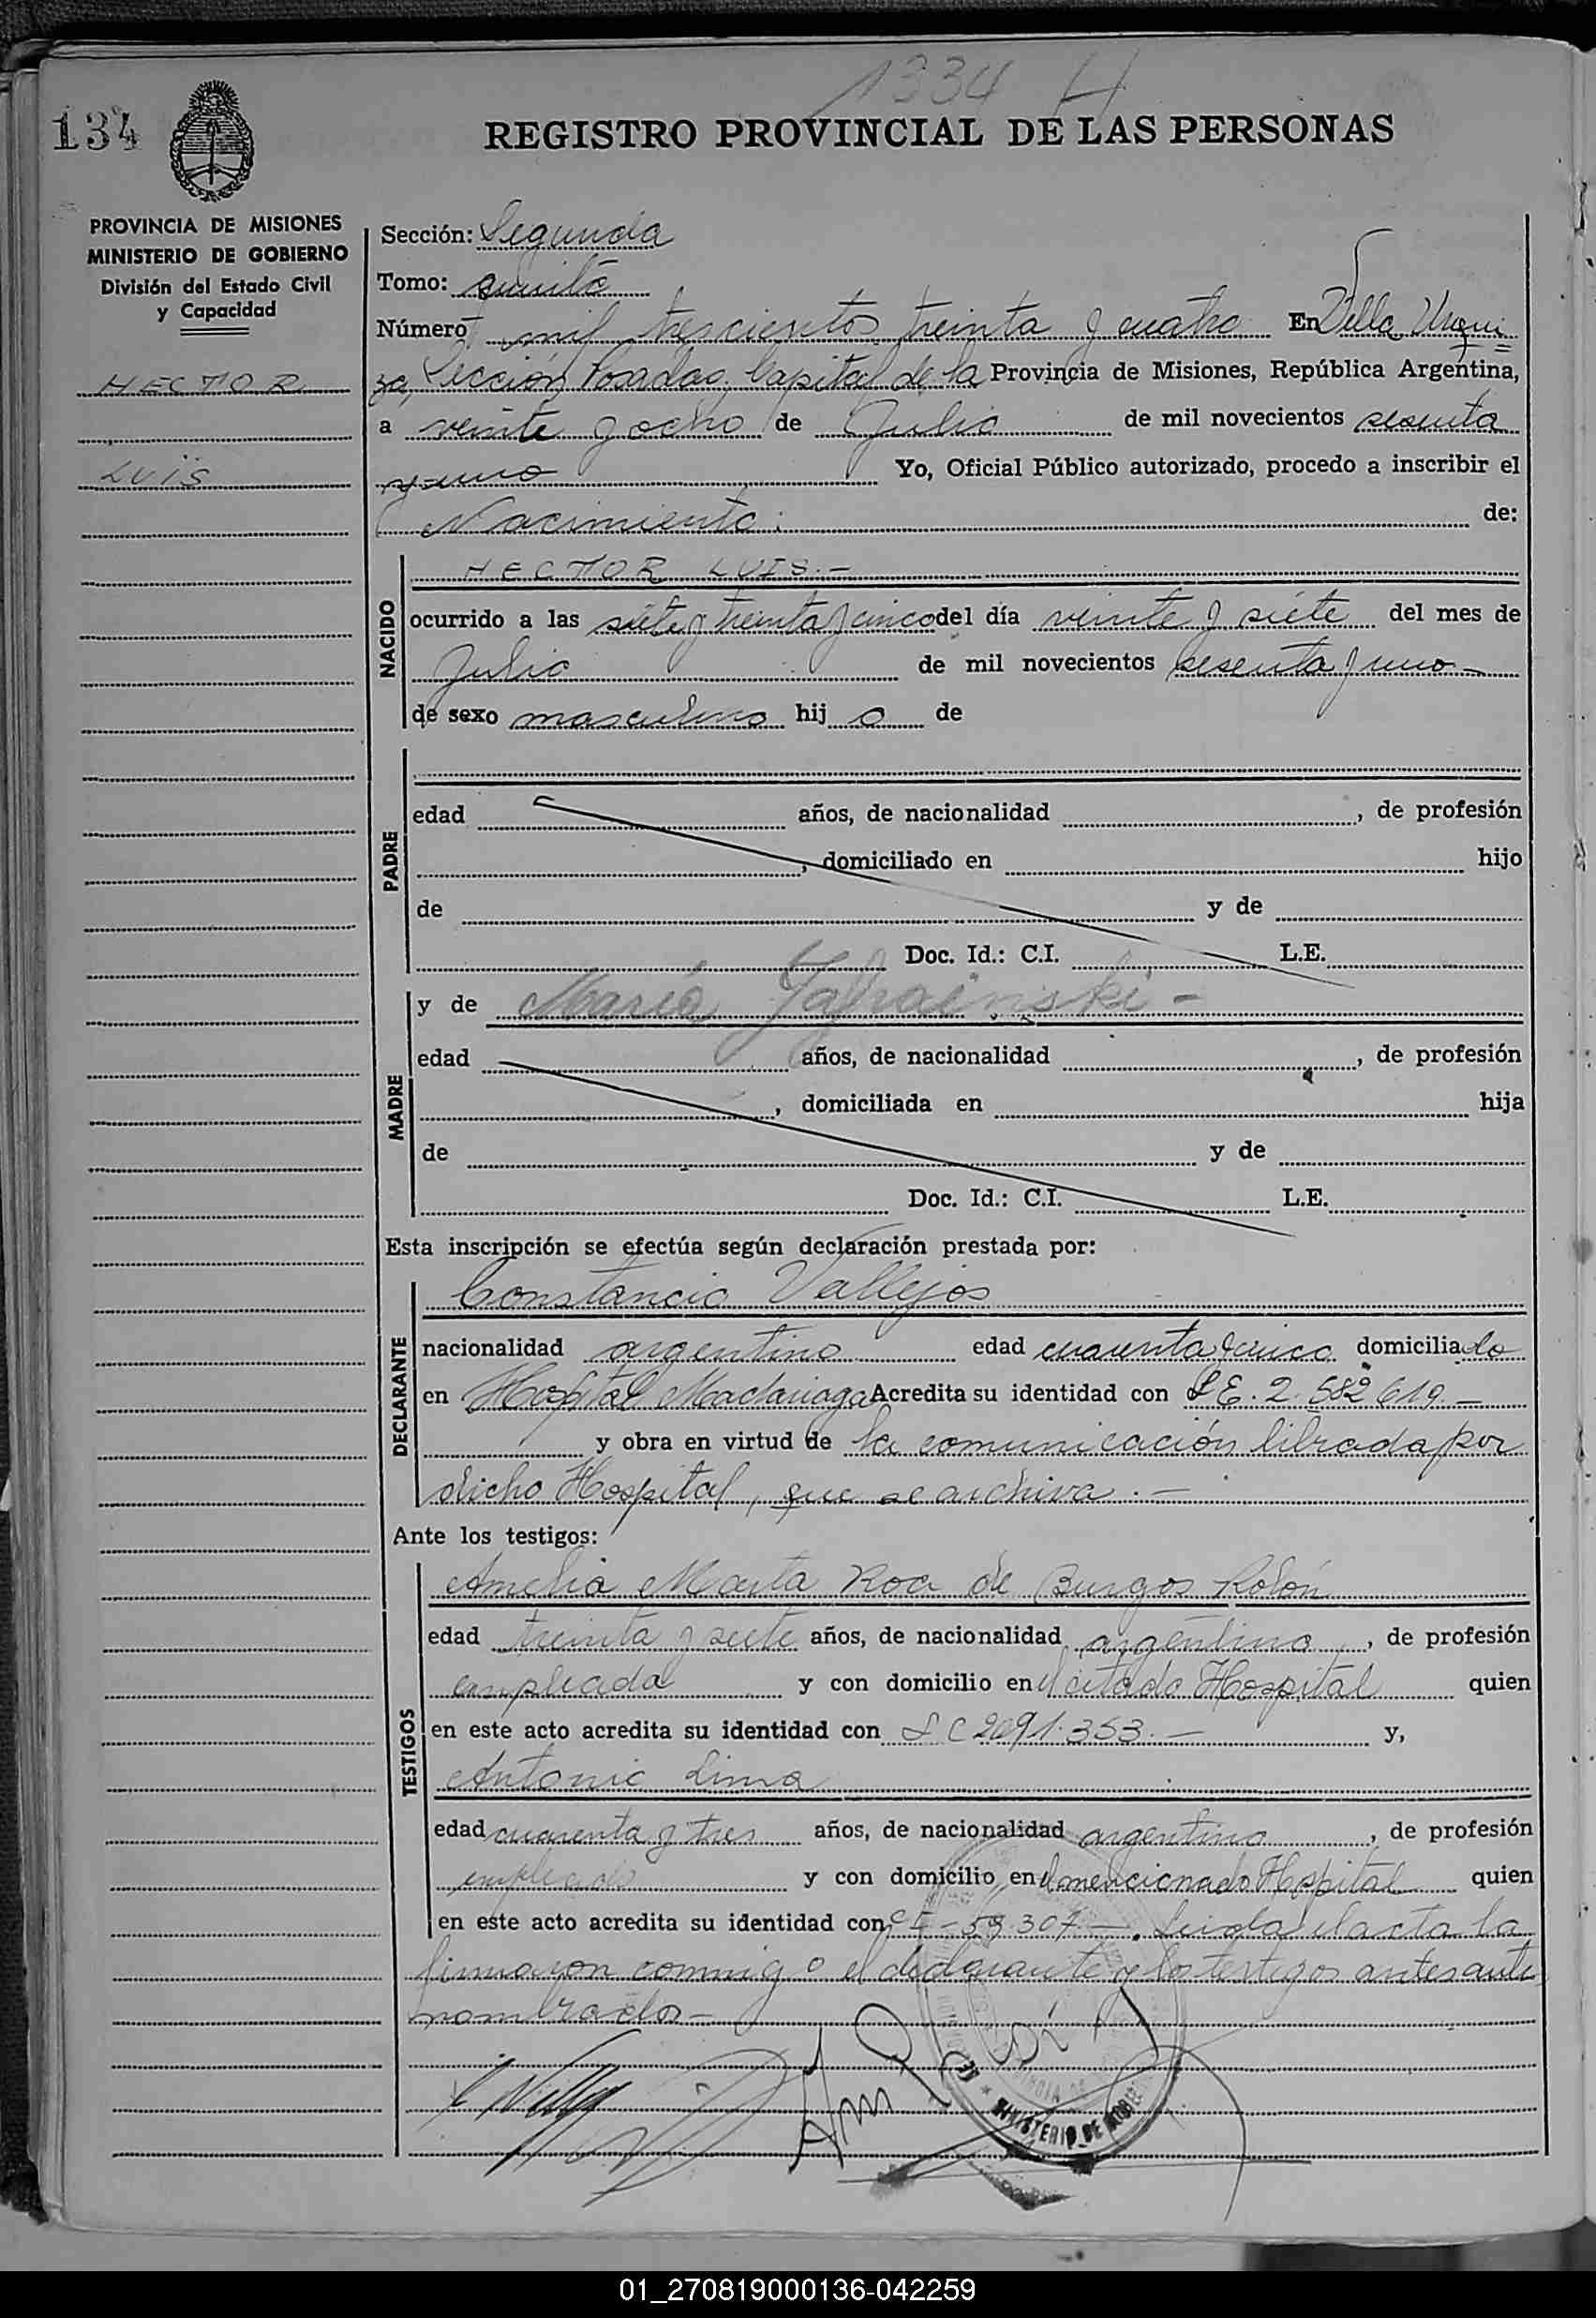 1334 H
134
REGISTRO PROVINCIAL DE LAS PERSONAS
PROVINCIA DE MISIONES
MINISTERIO DE GOBIERNO
División del Estado Civil
y Capacidad
HECTOR
LUIS
Sección: Segunda
Tomo: quinto
Número mil trescientos treinta y cuatro En Villa Urqui=
za, Sección Posadas, Capital de la Provincia de Misiones, República Argentina,
a veinte y ocho de Julio de mil novecientos sesenta
y uno Yo, Oficial Público autorizado, procedo a inscribir el
Nacimiento: de:
NACIDO
HECTOR LUIS.-
ocurrido a las siete y treinta y cinco del día veinte y siete del mes de
Julio de mil novecientos sesenta y uno-
de sexo masculino hij o de
PADRE
edad años, de nacionalidad , de profesión
, domiciliado en hijo
de y de
Doc. Id.: C.I. L.E.
MADRE
y de María -
edad años, de nacionalidad , de profesión
, domiciliada en hija
de y de
Doc. Id.: C.I. L.E.
Esta inscripción se efectúa según declaración prestada por:
DECLARANTE
Constancio Vallejos
nacionalidad argentino edad cuarenta y cinco domiciliado
en Hospital Madariaga Acredita su identidad con L.E. 2.582.619.-
y obra en virtud de la comunicación librada por
dicho Hospital, que se archiva.-
Ante los testigos:
TESTIGOS
Amelia Marta Roa de Burgos Rolón
edad treinta y siete años, de nacionalidad argentina, de profesión
empleada y con domicilio en el citado Hospital quien
en este acto acredita su identidad con L C 2091.353.- y,
Antonio Lima
edad cuarenta y tres años, de nacionalidad argentino, de profesión
empleado y con domicilio en el mencionado Hospital quien
en este acto acredita su identidad con C I - 59.307-. Leida el acta la
firmaron conmigo el declarante y los testigos antes
nombrados-
MINISTERIO DE
01_270819000136-042259